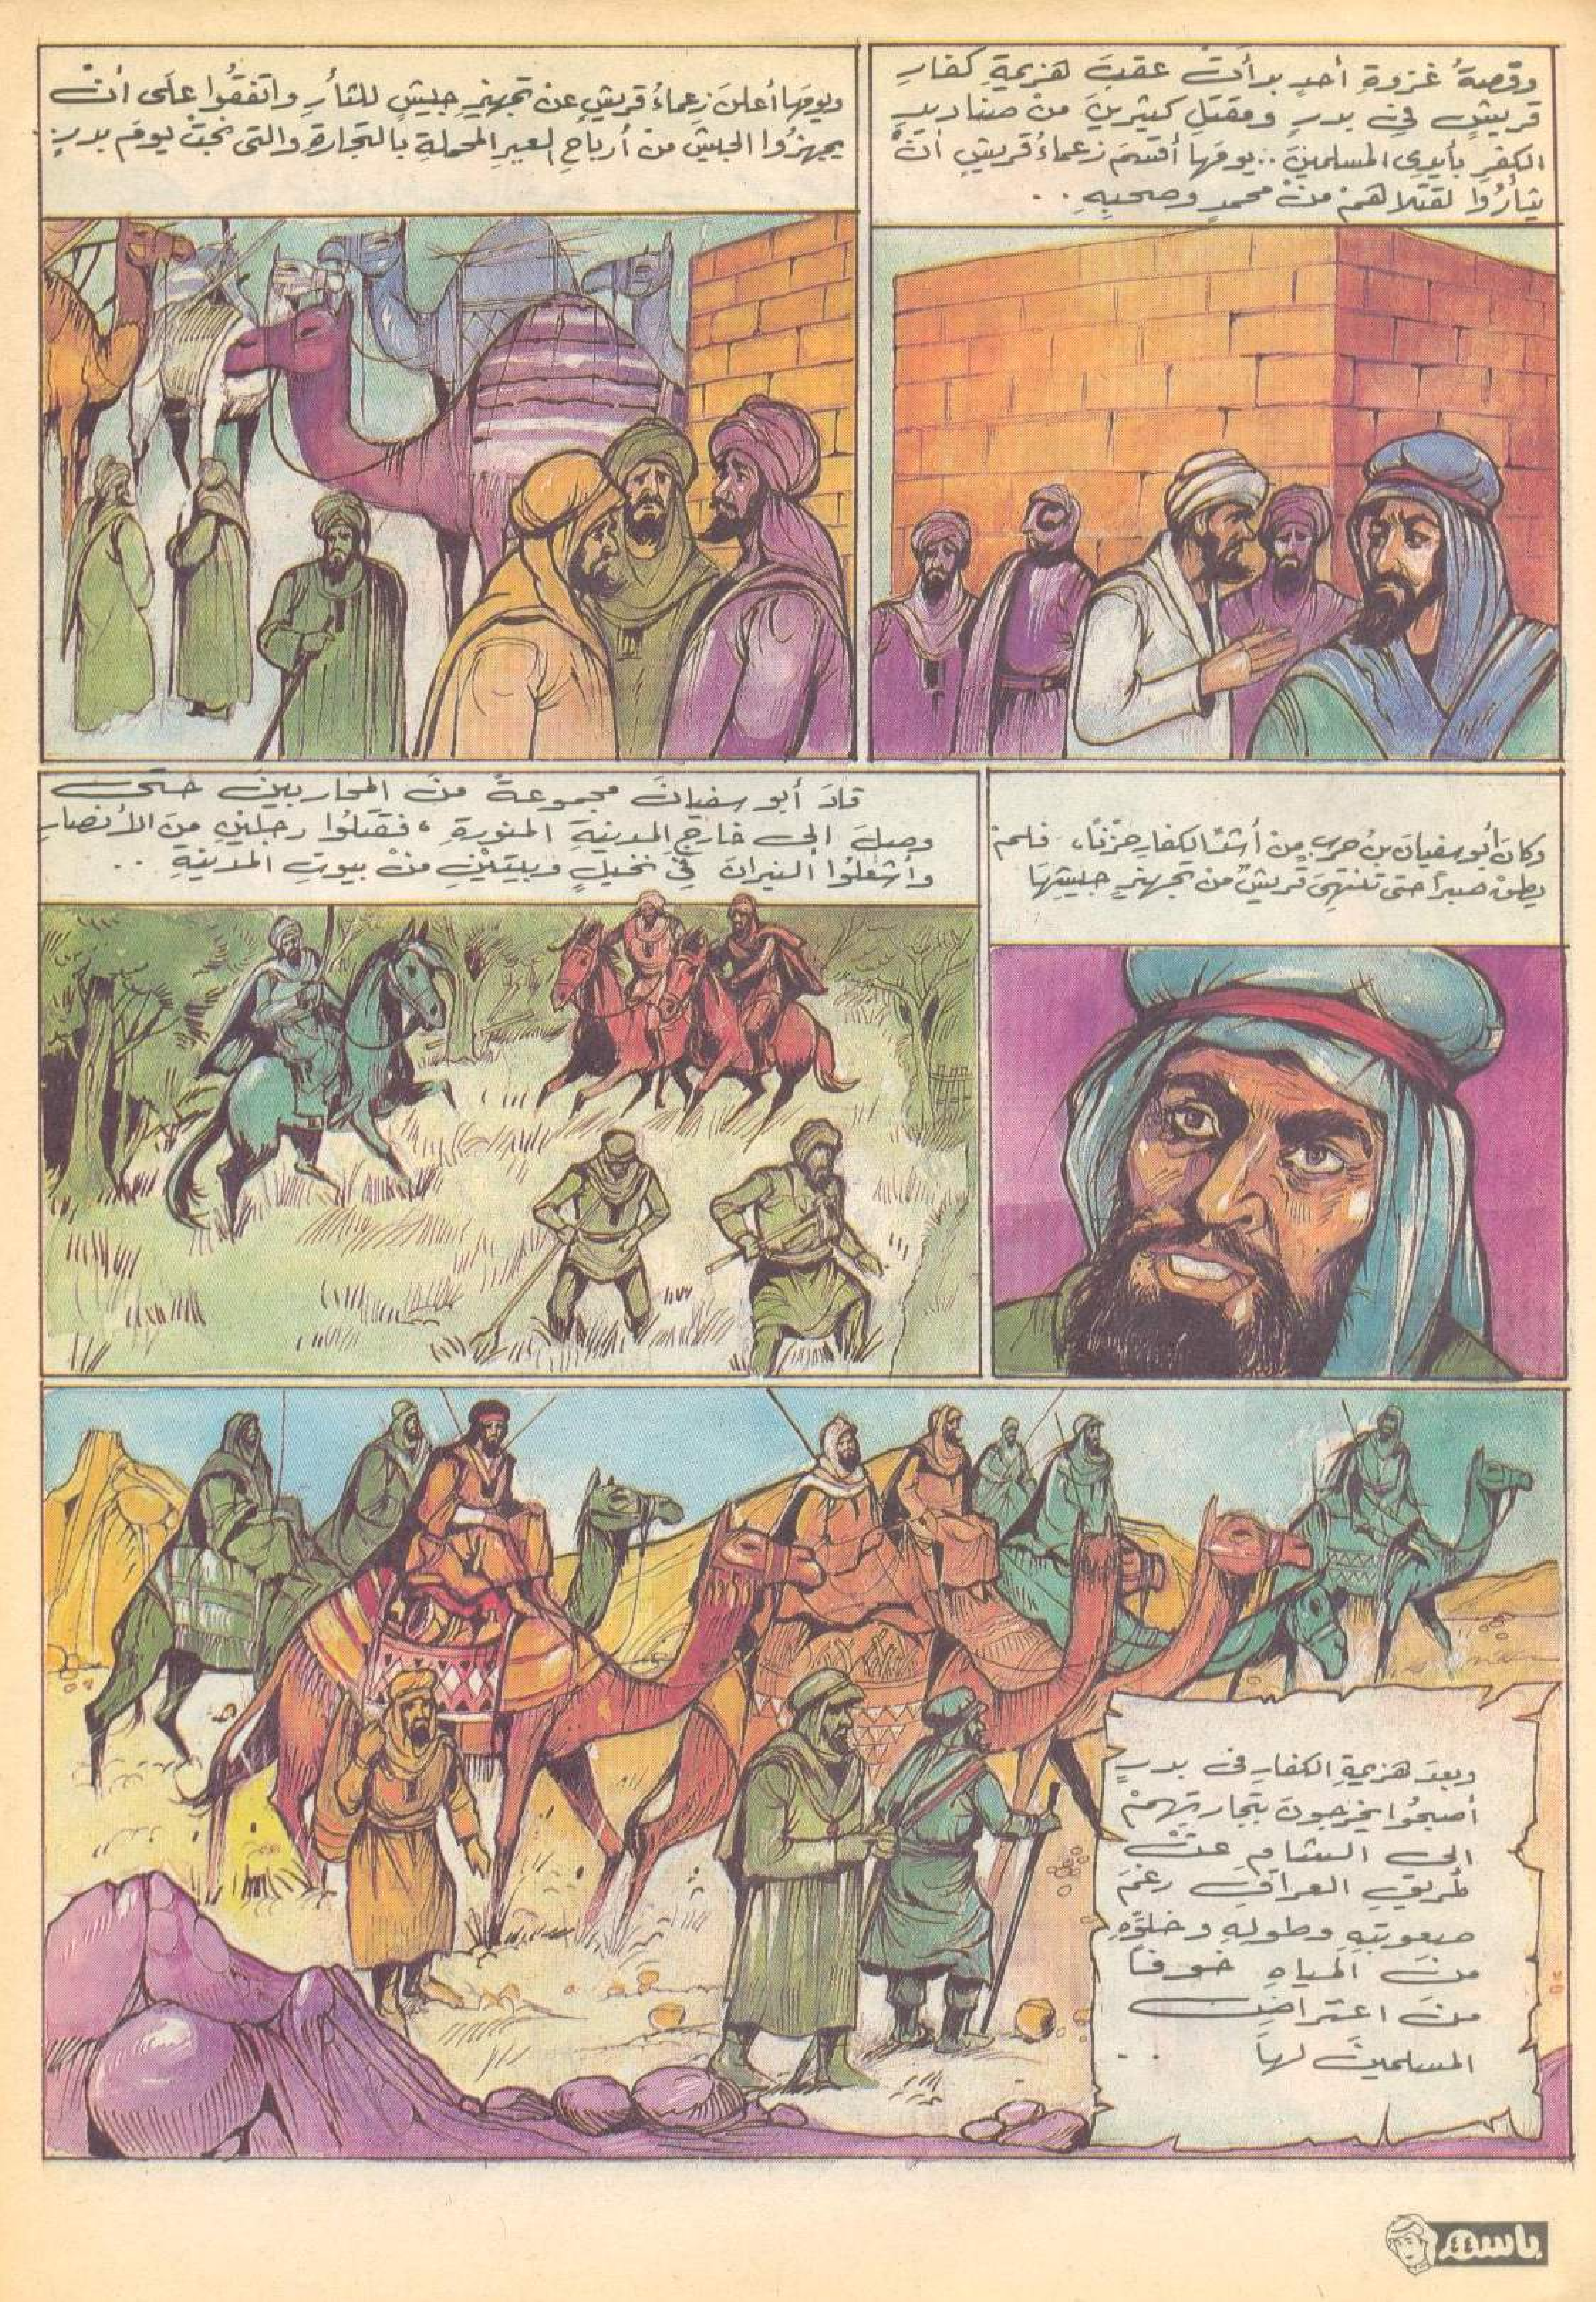 وقصةُ غزوةِ أحدٍ بدأتْ عقبَ هزيمةِ كفارِ
قريشٍ في بدرٍ ومقتلِ كثيرينَ منْ صناديدِ
الكفرِ بأيدى المسلمينَ .. يومَها أقسمَ زعماءُ قريشٍ أنْ
يثأرُوا لقتلاهمْ منْ محمدٍ وصحبِهِ ..
ويومَها أعلنَ زعماءُ قريشٍ عنْ تجهيزِ جيشٍ للثأرِ واتفقُوا علَى أنْ
يجهزُوا الجيشَ منْ أرباحِ العيرِ المحملةِ بالتجارةِ والتى نجتْ يومَ بدرٍ .
وكانَ أبو سفيانَ بنُ حربٍ منْ أشدِّ الكفارِ حزْنًا، فلمْ
يطقْ صبراً حتى تنتهِىَ قريشٌ منْ تجهيزِ جيشِهَا
قادَ أبو سفيانَ مجموعةً منَ المحاربينَ حتى
وصلَ إلى خارجِ المدينةِ المنورةِ ، فقتلُوا رجلينِ منَ الأنصارِ
وأشعلُوا النيرانَ فِى نخيلٍ وبيتيْنِ منْ بيوتِ المدينةِ ..
وبعدَ هزيمةِ الكفارِ فى بدرٍ
أصبحُوا يخرجونَ بتجارتِهمْ
إلى الشامِ عنْ
طريقِ العراقِ رغمَ
صعوبتِهِ وطولِهِ وخلوِّهِ
منَ المياهِ خوفاً
منَ اعتراضِ
المسلمينَ لهَا ..
باسم